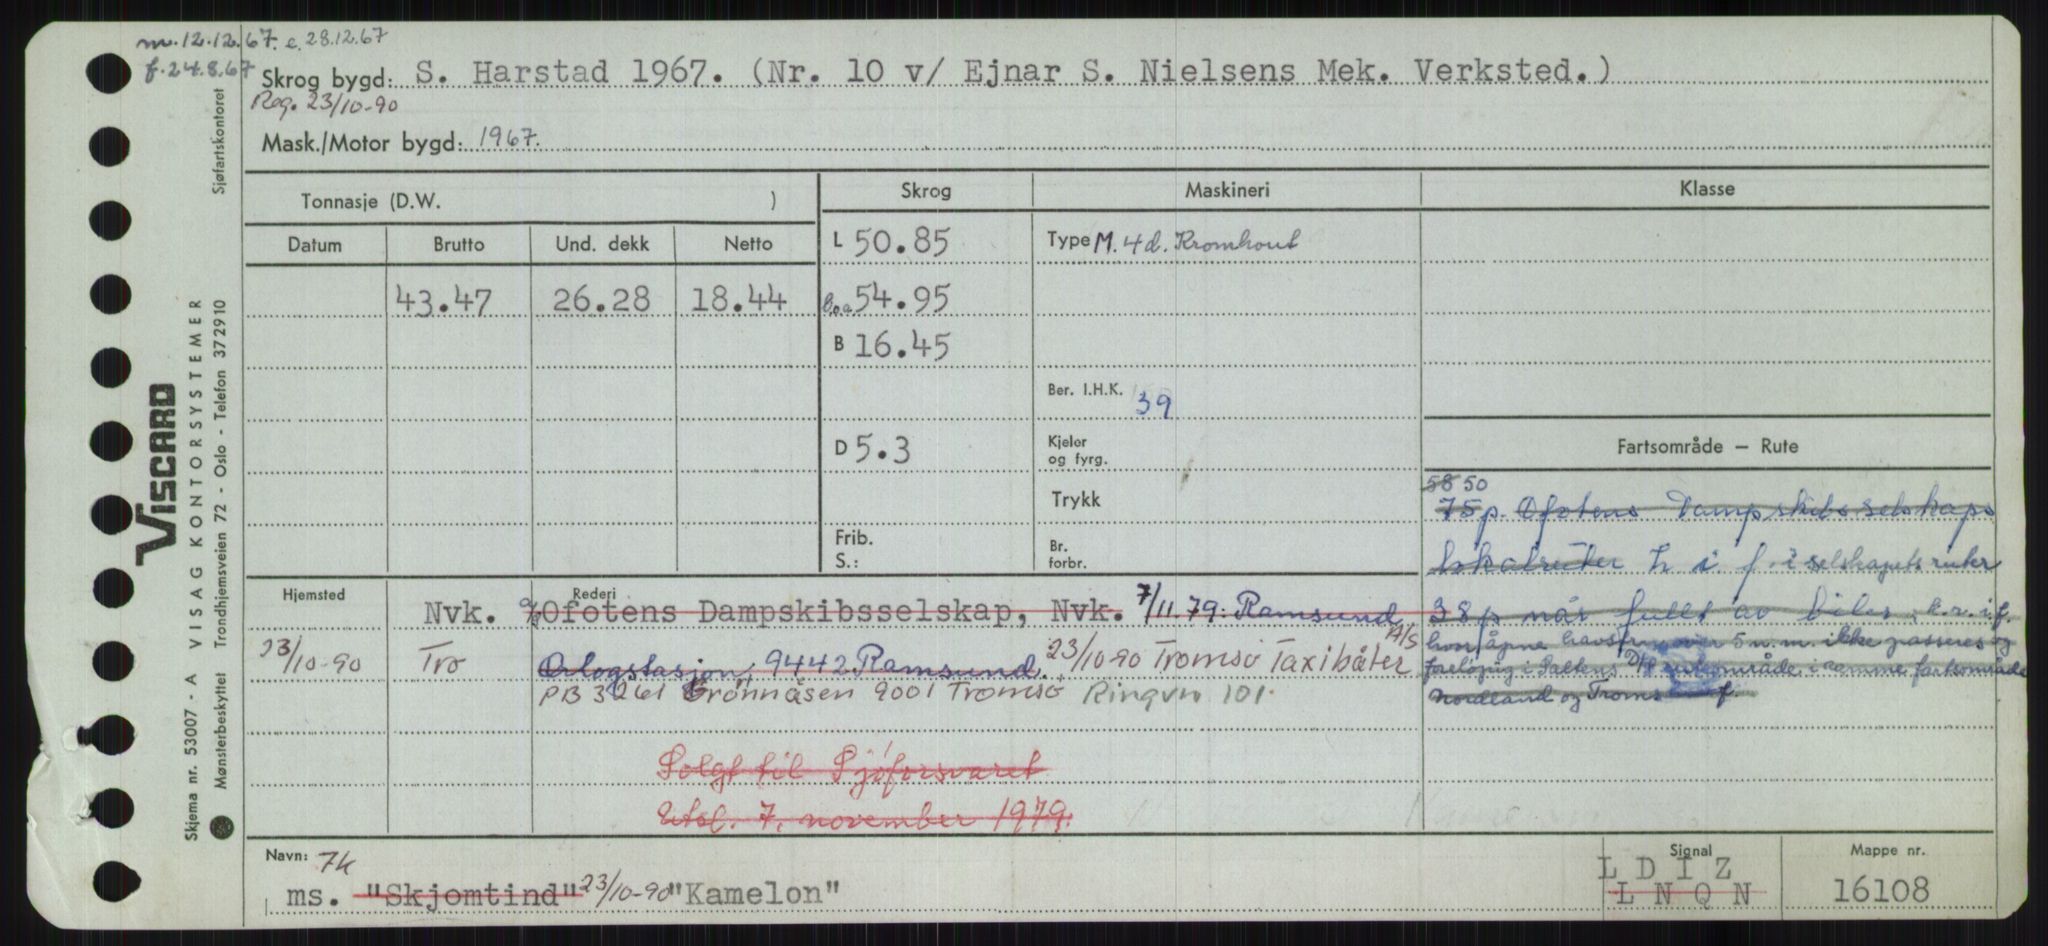 m. 12.12.67. e. 28.12.67
f. 24.8.67
Skrog bygd: S. Harstad 1967. (Nr. 10 v/ Ejnar S. Nielsens Mek. Verksted.)
Reg. 23/10-90
Mask./Motor bygd: 1967.
Tonnasje (D.W. )
Skrog Maskineri Klasse
Datum Brutto Und. dekk Netto
L 50.85 Type M. 4d. Kromhout
43.47 26.28 18.44 Loa 54.95
B 16.45
Ber. I.H.K. 39
D 5.3 Kjeler og fyrg.
Trykk
Frib. S.: Br. forbr.
Fartsområde — Rute
58 50
75 p. Ofotens Dampskibsselskaps
lokalruter i f. i selskapets ruter
38 p når fullt av biler.
over 5 n.m. ikke passeres og
foreløpig i Saltens D/S ruteområde i samme fartsområde
Nordland og Troms f.
Hjemsted Rederi
Nvk. a/s Ofotens Dampskibsselskap, Nvk. 7/11.79: Ramsund
23/10-90 Tro Orlogstasjon, 9442 Ramsund. 23/10-90 Tromsø Taxibåter A/S
PB 3261 Grønnåsen 9001 Tromsø Ringvn 101.
Solgt til Sjøforsvaret
Utsl. 7. november 1979.
Navn: 7k
ms. "Skjomtind" 23/10-90 "Kamelon"
Signal
L D I Z
L N Q N
Mappe nr.
16108
VISCARD
Skjema nr. 53007 - A VISAG KONTORSYSTEMER
Mønsterbeskyttet Trondhjemsveien 72 - Oslo - Telefon 372910
Sjøfartskontoret